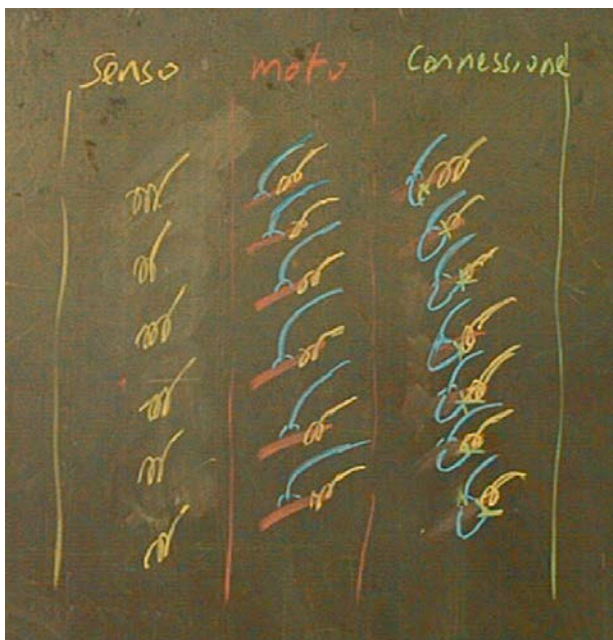 senso moto connessione